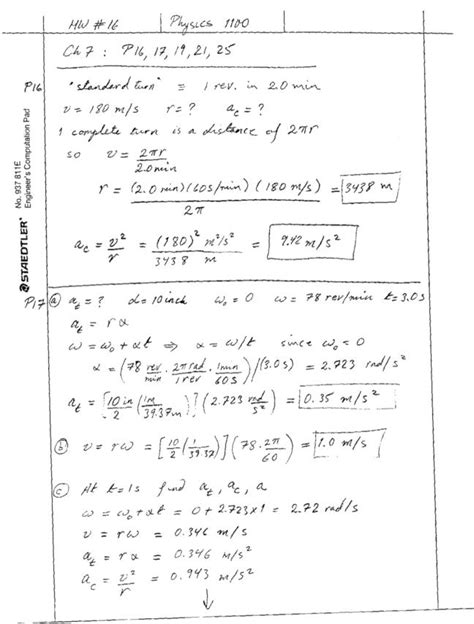 HW #16 Physics 1100
Ch 7 : P16, 17, 19, 21, 25
P16 "standard turn" ≡ 1 rev. in 2.0 min
v = 180 m/s r = ? a_c = ?
1 complete turn is a distance of 2πr
so v = 2πr / 2.0 min
r = (2.0 min)(60 s/min)(180 m/s) / 2π = 3438 m
a_c = v²/r = (180)² m²/s² / 3438 m = 9.42 m/s²
No. 937 811E
Engineer's Computation Pad
STAEDTLER
P17 (a) a_t = ? d = 10 inch ω₀ = 0 ω = 78 rev/min t = 3.0 s
a_t = rα
ω = ω₀ + αt ⇒ α = ω/t since ω₀ = 0
α = (78 rev/min · 2π rad/1 rev · 1 min/60 s)/(3.0 s) = 2.723 rad/s²
a_t = [10 in/2 (1m/39.37in)](2.723 rad/s²) = 0.35 m/s²
(b) v = rω = [10/2 (1/39.37)](78 · 2π/60) = 1.0 m/s
(c) At t = 1s find a_t, a_c, a
ω = ω₀ + αt = 0 + 2.723×1 = 2.72 rad/s
v = rω = 0.346 m/s
a_t = rα = 0.346 m/s²
a_c = v²/r = 0.943 m/s²
↓